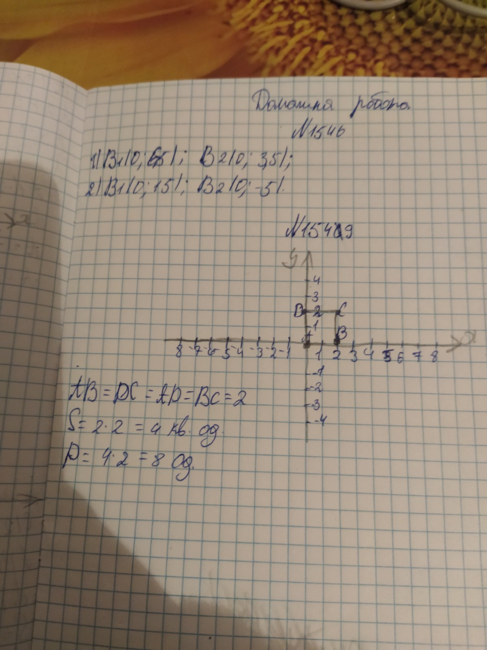 Домашня рбота
N1546
1) B1(0; 6,5); B2(0; 3,5);
2) B1(0; 15); B2(0; -5).
N1549
y
4
3
B 2 C
1 B
8 -7 -6 -5 -4 -3 -2 -1 1 2 3 4 5 6 7 8 x
-1
-2
-3
-4
AB = DC = AD = BC = 2
S = 2·2 = 4 кв. од
P = 4·2 = 8 од.